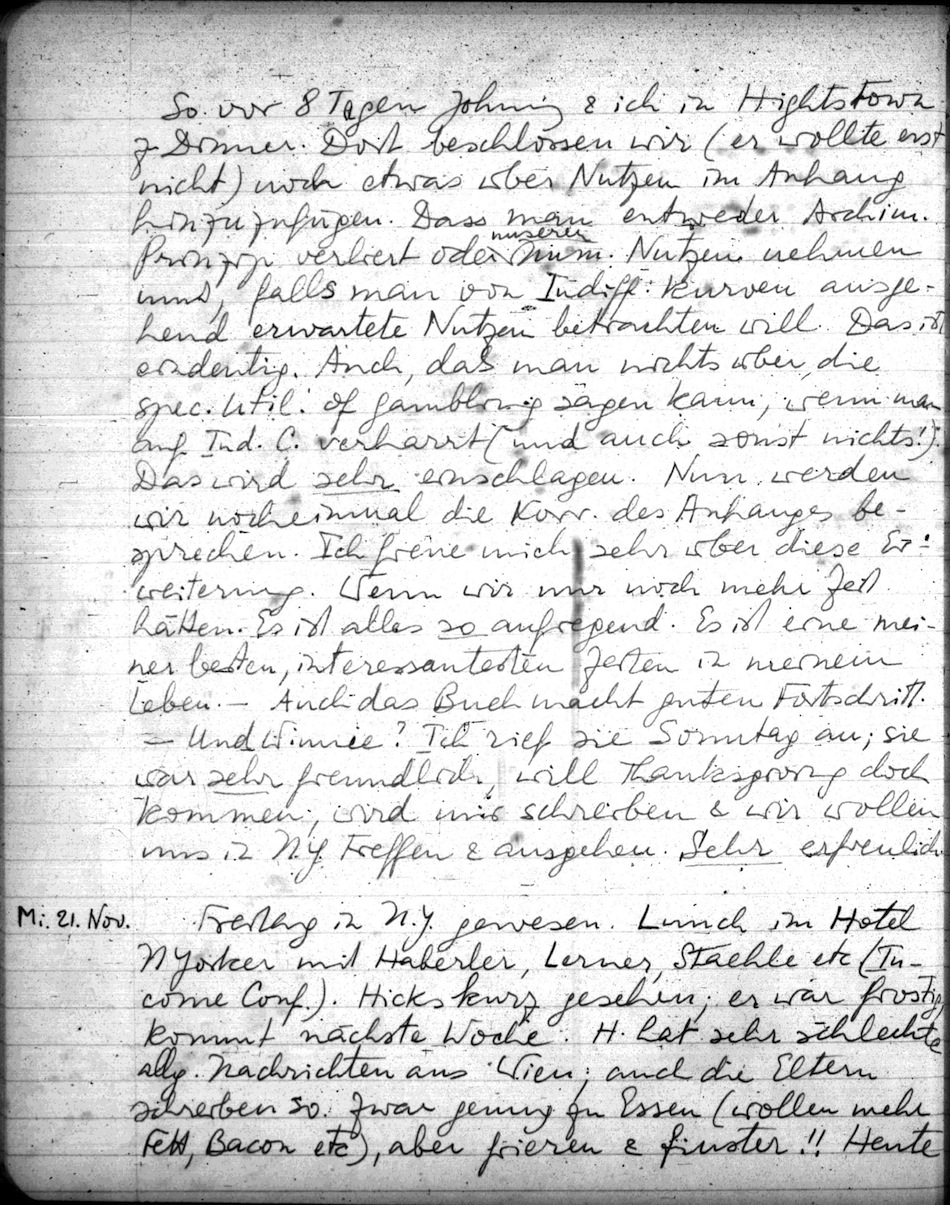 So. vor 8 Tagen Johnny & ich in Hightstown
z. Dinner. Dort beschlossen wir (er wollte erst
nicht) noch etwas über Nutzen im Anhang
hinzuzufügen. Dass man entweder Archim.
Prinzip verliert oder unseren num. Nutzen nehmen
muss, falls man von Indiff. kurven ausge-
hend erwartete Nutzen betrachten will. Das ist
eindeutig. Auch, daß man nichts über die
spec. Util. of gambling sagen kann, wenn man
auf Ind. C. verharrt (und auch sonst nichts!).
Das wird sehr einschlagen. Nun werden
wir nocheinmal die Korr. des Anhanges be-
sprechen. Ich freue mich sehr über diese Er-
weiterung. Wenn wir nur noch mehr Zeit
hätten. Es ist alles so aufregend. Es ist eine mei-
ner besten, interessantesten Zeiten in meinem
Leben. – Auch das Buch macht guten Fortschritt.
= Und Winnie? Ich rief sie Sonntag an; sie
war sehr freundlich, will Thanksgiving doch
kommen, wird mir schreiben & wir wollen
uns in N.Y. treffen & ausgehen. Sehr erfreulich.
Mi. 21. Nov. Freitag in N.Y. gewesen. Lunch im Hotel
NYorker mit Haberler, Lerner, Staehle etc (In-
come Conf.). Hicks kurz gesehen; er war frostig
kommt nächste Woche. H. hat sehr schlechte
allg. Nachrichten aus Wien; auch die Eltern
schreiben so. Zwar genug zu Essen (wollen mehr
Fett, Bacon etc), aber frieren & finster!! Heute